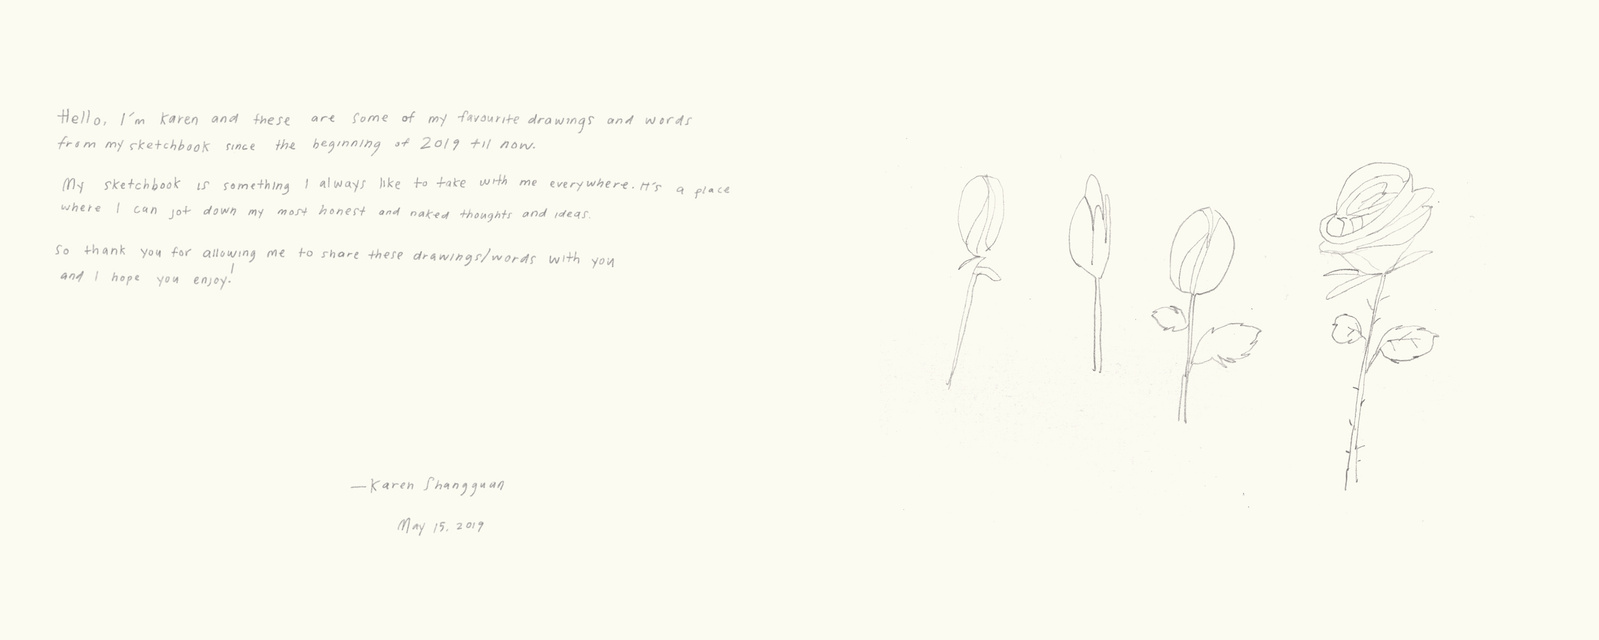 Hello, I'm Karen and these are some of my favourite drawings and words
from my sketchbook since the beginning of 2019 til now.
My sketchbook is something I always like to take with me everywhere. It's a place
where I can jot down my most honest and naked thoughts and ideas.
So thank you for allowing me to share these drawings/words with you
and I hope you enjoy!
—Karen Shangguan
May 15, 2019